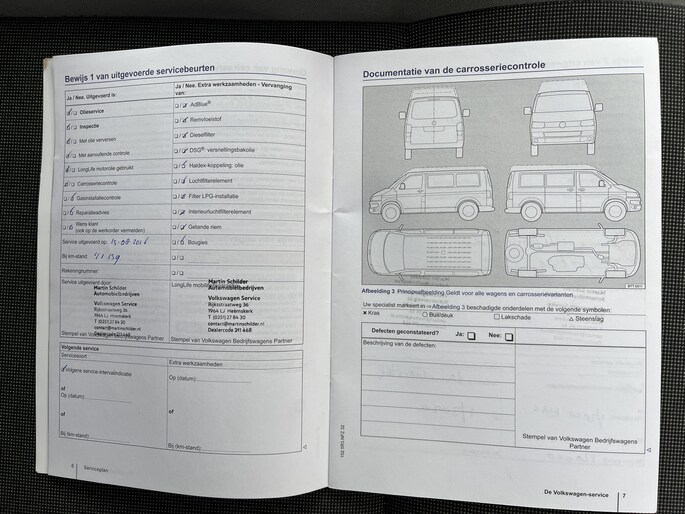 Bewijs 1 van uitgevoerde servicebeurten
Ja / Nee. Uitgevoerd is:
Olieservice
Inspectie
Met olie verversen
Met aanvullende controle
LongLife motorolie gebruikt
Carrosseriecontrole
Gasinstallatiecontrole
Reparatieadvies
Wens klant
(ook op de werkorder vermelden)
Service uitgevoerd op:
Bij km-stand:
Rekeningnummer:
Service uitgevoerd door:
Martin Schilder
Automobielbedrijven
Volkswagen Service
Rijksstraatweg 36
1964 LJ Heemskerk
T (0251) 27 84 30
contact@martinschilder.nl
Dealercode 211 468
Stempel van Volkswagen Bedrijfswagens Partner
Ja / Nee. Extra werkzaamheden - Vervanging
van:
AdBlue®
Remvloeistof
Dieselfilter
DSG® versnellingsbakolie
Haldex-koppeling: olie
Luchtfilterelement
Filter LPG-installatie
Interieurluchtfilterelement
Getande riem
Bougies
LongLife
Martin Schilder
Automobielbedrijven
Volkswagen Service
Rijksstraatweg 36
1964 LJ Heemskerk
T (0251) 27 84 30
contact@martinschilder.nl
Dealercode 211 468
Stempel van Volkswagen Bedrijfswagens Partner
Volgende service
Servicesoort
Volgens service-intervalindicatie
of
Op (datum):
of
Bij (km-stand):
Extra werkzaamheden
Op (datum):
of
Bij (km-stand):
6 Serviceplan
Documentatie van de carrosseriecontrole
Afbeelding 3 Principeafbeelding Geldt voor alle wagens en carrosserievarianten
Uw specialist markeert in ⇒ Afbeelding 3 beschadigde onderdelen met de volgende symbolen:
× Kras ○ Buil/deuk □ Lakschade △ Steenslag
Defecten geconstateerd? Ja: Nee:
Beschrijving van de defecten:
Stempel van Volkswagen Bedrijfswagens
Partner
De Volkswagen-service 7